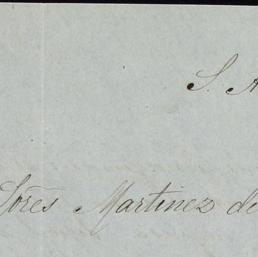 S. A
Sores Martinez de